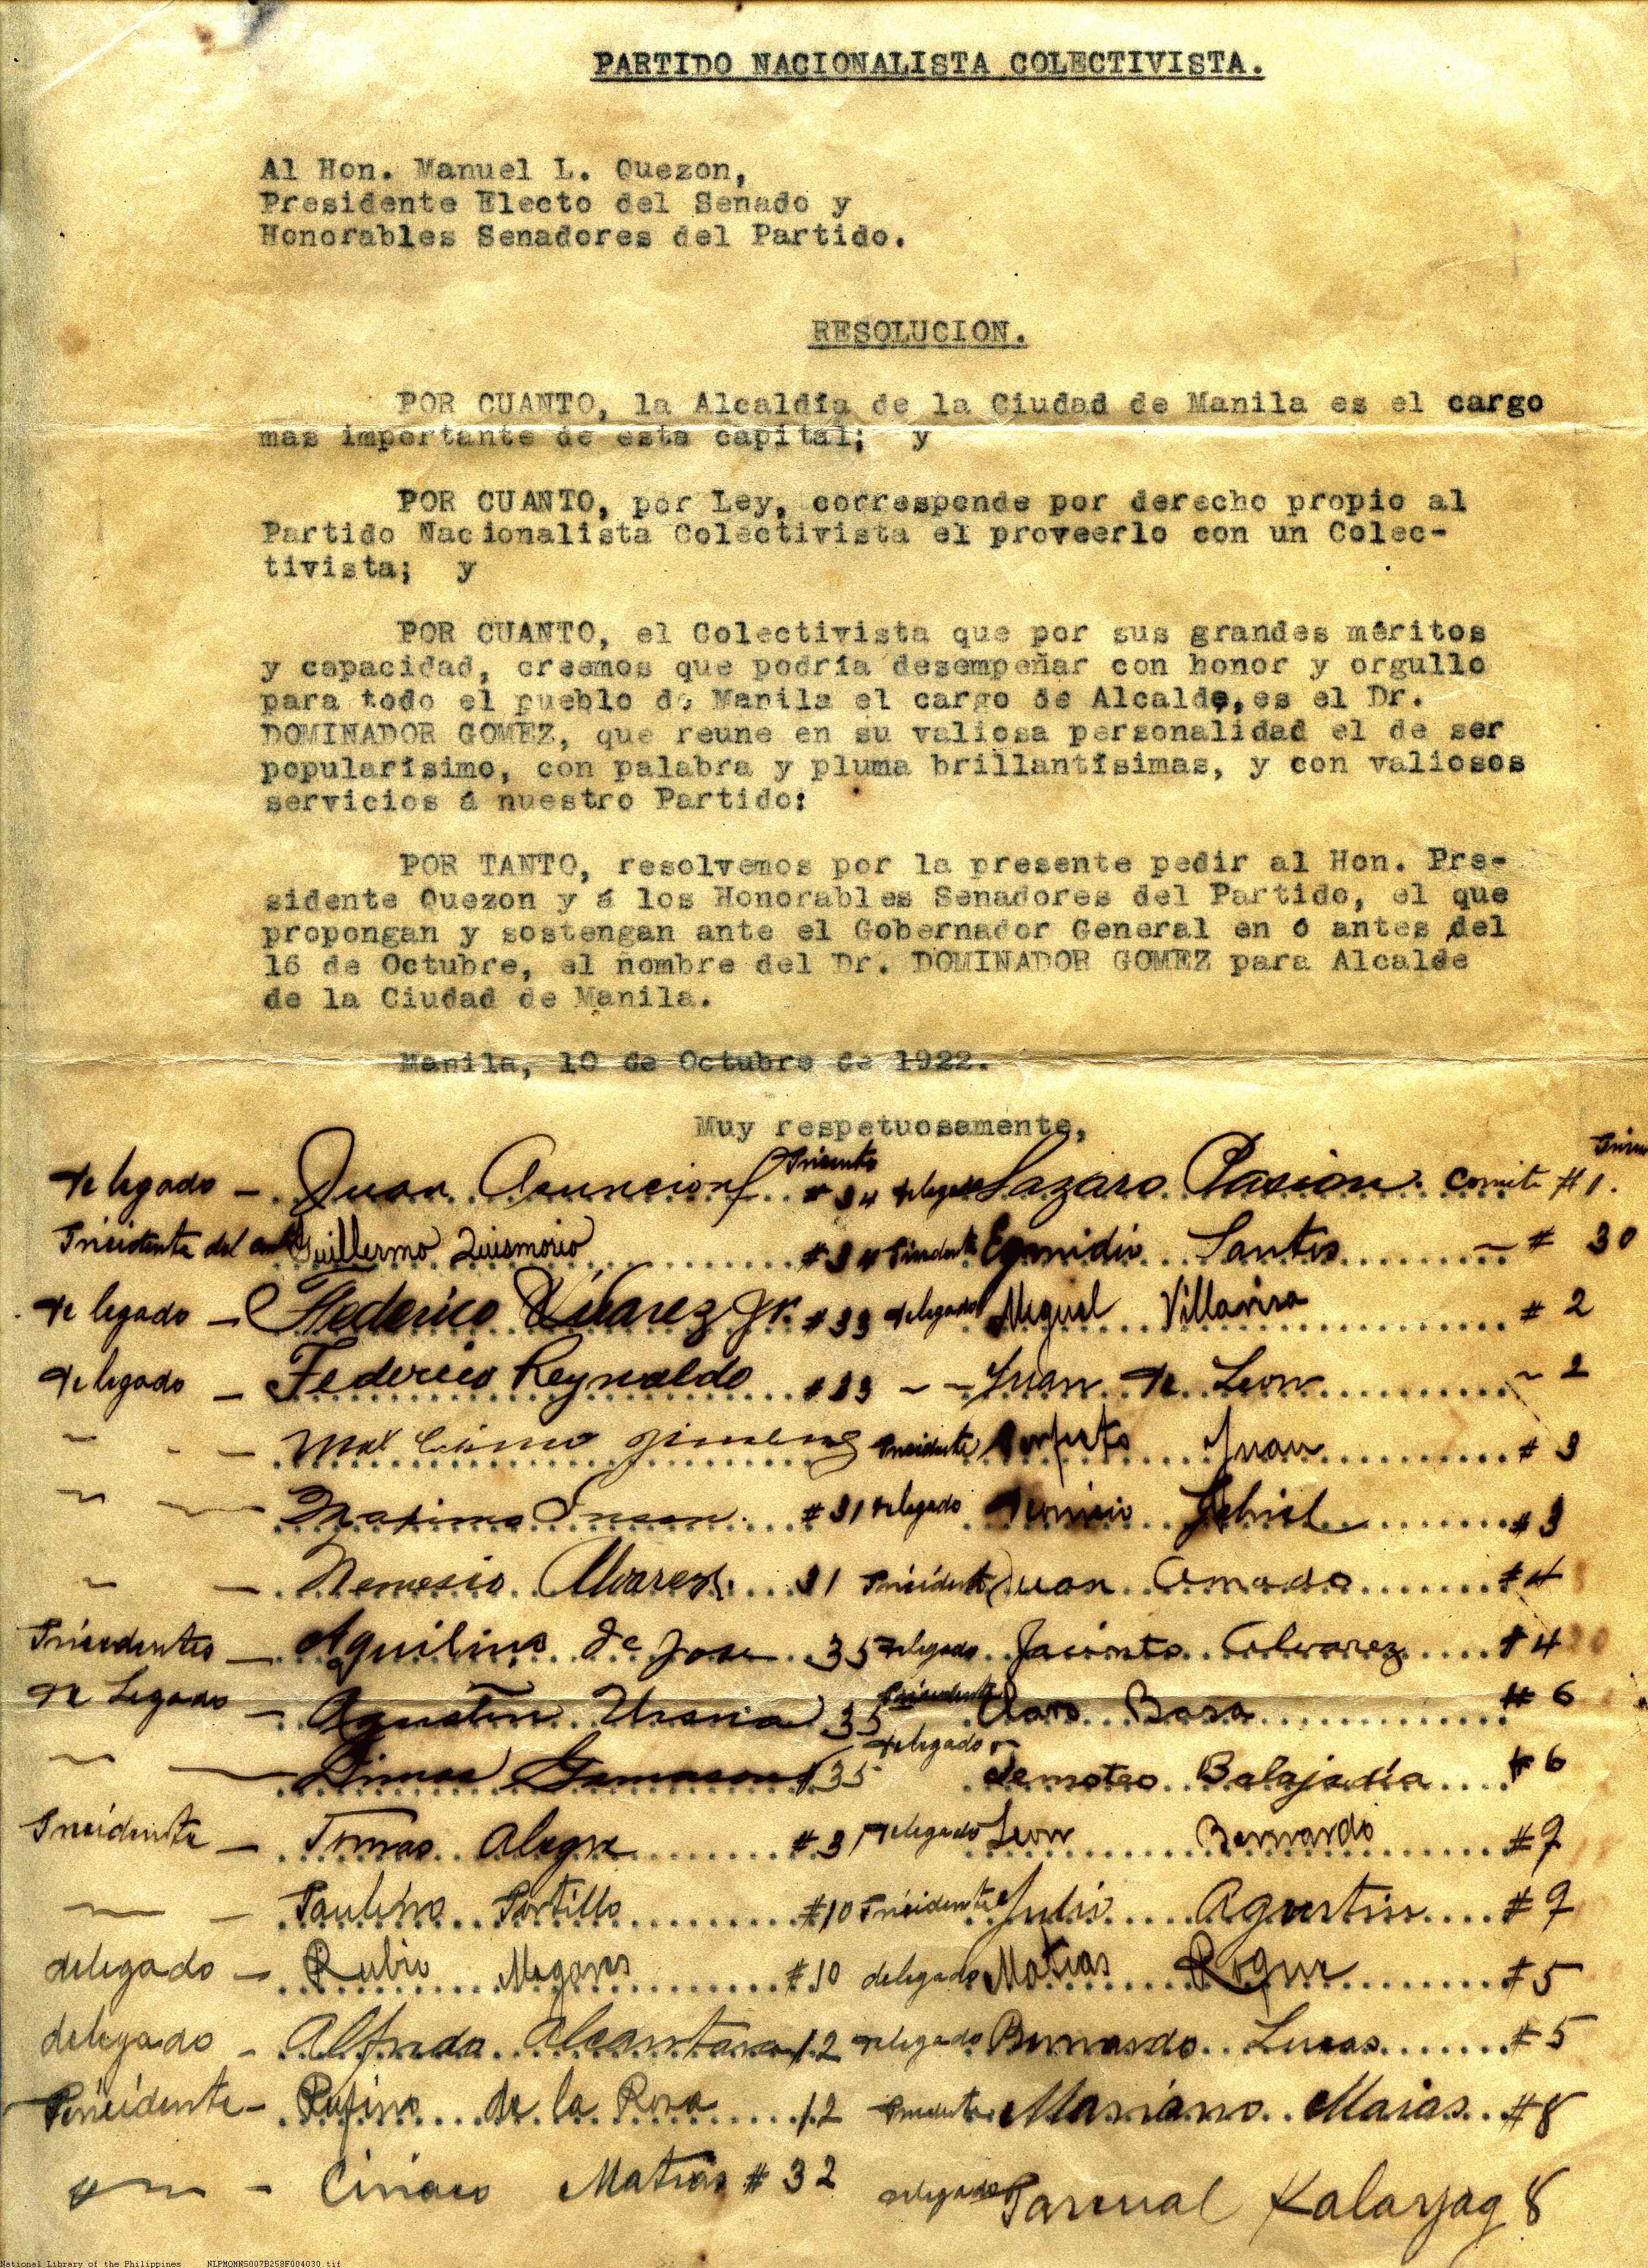 PARTIDO NACIONALISTA COLECTIVISTA.
Al Hon. Manuel L. Quezon,
Presidente Electo del Senado y
Honorables Senadores del Partido.
RESOLUCION.
POR CUANTO, la Alcaldía de la Ciudad de Manila es el cargo
mas importante de esta capital; y
POR CUANTO, por Ley, corresponde por derecho propio al
Partido Nacionalista Colectivista el proveerlo con un Colec-
tivista; y
POR CUANTO, el Colectivista que por sus grandes méritos
y capacidad, creemos que podría desempeñar con honor y orgullo
para todo el pueblo de Manila el cargo de Alcalde, es el Dr.
DOMINADOR GOMEZ, que reune en su valiosa personalidad el de ser
popularísimo, con palabra y pluma brillantísimas, y con valiosos
servicios á nuestro Partido:
POR TANTO, resolvemos por la presente pedir al Hon. Pre-
sidente Quezon y á los Honorables Senadores del Partido, el que
propongan y sostengan ante el Gobernador General en ó antes del
16 de Octubre, el nombre del Dr. DOMINADOR GOMEZ para Alcalde
de la Ciudad de Manila.
Manila, 10 de Octubre de 1922.
Muy respetuosamente,
delegado - Juan Asuncion #34 delegado Lazaro Pasion comite #1.
Guillermo Quismorio #34 Egmidio Santos - # 30
delegado - Federico Alvarez Jr. #33 delegado Miguel # 2
delegado - Federico Reynaldo #33 - - Juan de Leon - 2
Perfecto Juan # 3
Maximo #31 delegado # 3
Nemesio Alvarez 31 Juan Amado #4
Aquilino de Jose 35 delegado Jacinto Alvarez #4
delegado - Agustin 35 Claro Basa # 6
35 delegado Temoteo Balajadia #6
Tomas Alegre #31 delegado Leon Bernardo #7
Paulino Portillo #10 Julio Agustin #7
delegado - Rubio #10 delegado Matias Roque #5
delegado - Alfredo Alcantara 12 delegado Bernardo Lucas #5
Rufino de la Rosa 12 Mariano #8
Ciriaco Matias # 32 delegado Pascual Kalayag 8
National Library of the Philippines NLPMQMNS007B258F004030.tif